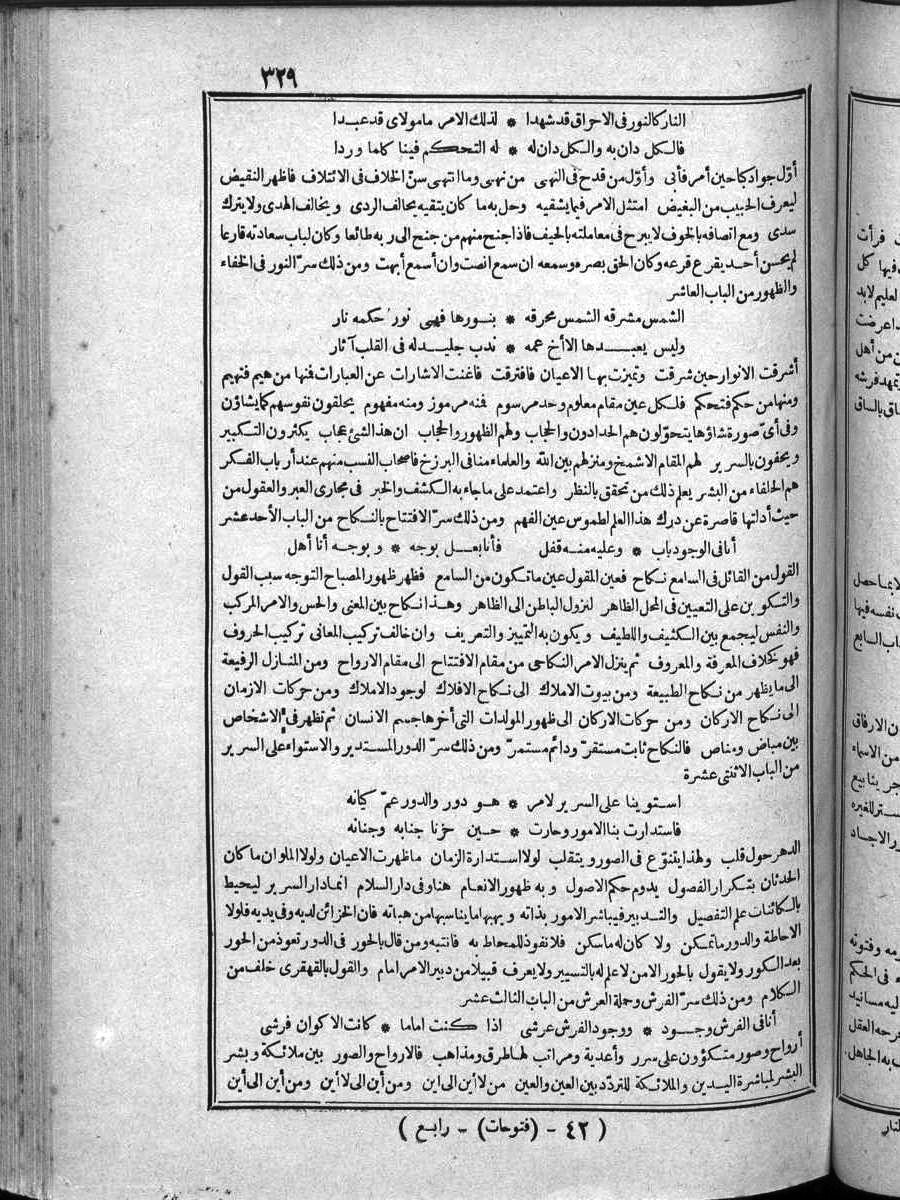 ٣٢٩
النار كالنور في الاحراق قد شهدا * لذلك الامر مامولاي قد عبدا
فالكل دان به والكل دان له * له التحكم فينا كلما وردا
أوّل جواد كبا حين أمر فأبى وأوّل من قدح في النهى من نهى وما انتهى سنّ الخلاف في الائتلاف فاظهر النقيض
ليعرف الحبيب من البغيض امتثل الامر فيما يشقيه وحل به ما كان يتقيه يحالف الردى ويخالف الهدى ولا يترك
سدى ومع اتصافه بالخوف لا يبرح في معاملته بالحيف فاذا جنح منهم من جنح الى ربه طائعا وكان لباب سعادته قارعا
لم يحسن أحد يقرع قرعه وكان الحق بصره وسمعه ان سمع انصت وان أسمع أبهت ومن ذلك سرّ النور في الخفاء
والظهور من الباب العاشر
الشمس مشرقه الشمس محرقه * بنورها فهي نور حكمه نار
وليس يعبدها الا أخ عمه * ندب جليد له في القلب آثار
أشرقت الانوار حين شرقت وتميزت بها الاعيان فافترقت فاغنت الاشارات عن العبارات فمنها من هيم فتهيم
ومنها من حكم فتحكم فلكل عين مقام معلوم وحد مرسوم فمنه مرموز ومنه مفهوم يخلقون نفوسهم كما يشاؤن
وفي أيّ صورة شاؤها يتحوّلون هم الحدادون والحجاب ولهم الظهور والحجاب ان هذا لشئ عجاب يكثرون التكبير
ويحفون بالسرير لهم المقام الاشمخ ومنزلهم بين الله والعلماء منا في البرزخ فاصحاب النسب منهم عند أرباب الفكر
هم الخلفاء من البشر يعلم ذلك من تحقق بالنظر واعتمد على ما جاء به الكشف والخبر في مجارى العبر والعقول من
حيث أدلتها قاصرة عن درك هذا العلم لطموس عين الفهم ومن ذلك سرّ الافتتاح بالنكاح من الباب الأحد عشر
أنا في الوجود باب * وعليه منه قفل فأنا بعل بوجه * وبوجه أنا أهل
القول من القائل في السامع نكاح فعين المقول عين ما تكون من السامع فظهر ظهور المصباح التوجه سبب القول
والتكوين على التعيين في المحل الظاهر لنزول الباطن الى الظاهر وهذا نكاح بين المعنى والحس والامر المركب
والنفس ليجمع بين الكثيف واللطيف ويكون به التمييز والتعريف وان خالف تركيب المعانى تركيب الحروف
فهو كخلاف المعرفة والمعروف ثم ينزل الامر النكاحي من مقام الافتتاح الى مقام الارواح ومن المنازل الرفيعة
الى ما يظهر من نكاح الطبيعة ومن بيوت الاملاك الى نكاح الافلاك لوجود الاملاك ومن حركات الازمان
الى نكاح الاركان ومن حركات الاركان الى ظهور المولدات التي أخوها جسم الانسان ثم تظهر في الاشخاص
بين مباض ومناص فالنكاح ثابت مستقرّ ودائم مستمرّ ومن ذلك سرّ الدور المستدير والاستواء على السرير
من الباب الاثنتى عشرة
استوينا على السرير لامر * هو دور والدور عمّ كيانه
فاستدارت بنا الامور وحارت * حين حزنا جنابه وجنانه
الدهر حول قلب ولهذا يتنوّع في الصور ويتقلب لولا استدارة الزمان ما ظهرت الاعيان ولولا الملوان ما كان
الحدثان بتكرار الفصول يدوم حكم الاصول وبه ظهور الانعام هنا وفي دار السلام انما دار السرير ليحيط
بالكائنات علم التفصيل والتدبير فيباشر الامور بذاته ويهبها ما يناسبها من هباته فان الخزائن لديه وفي يديه فلولا
الاحاطة والدور ما تمسكن ولا كان له ما سكن فلا نفوذ للمحاط به فانتبه ومن قال بالحور في الدور تعوذ من الحور
بعد الكور ولا يقول بالحور الا من لا علم له بالتسيير ولا يعرف قبيلا من دبير الامر امام والقول بالقهقرى خلف من
الكلام ومن ذلك سرّ الفرش وحملة العرش من الباب الثالث عشر
أنا في الفرش وجود * ووجود الفرش عرشى اذا كنت اماما * كانت الاكوان فرشى
أرواح وصور متكؤون على سرر وأغدية ومراتب لها طرق ومذاهب فالارواح والصور بين ملائكة وبشر
البشر لمباشرة اليدين والملائكة للتردّد بين العين والعين من لا أين الى اين ومن أين الى لا أين ومن أين الى أين
( ٤٢ - (فتوحات) - رابع )